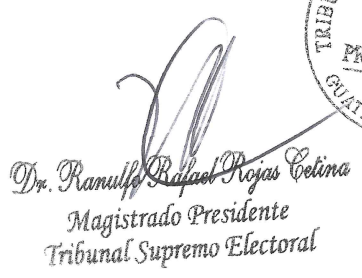 Dr. Ranulfo Rafael Rojas Cetina
Magistrado Presidente
Tribunal Supremo Electoral